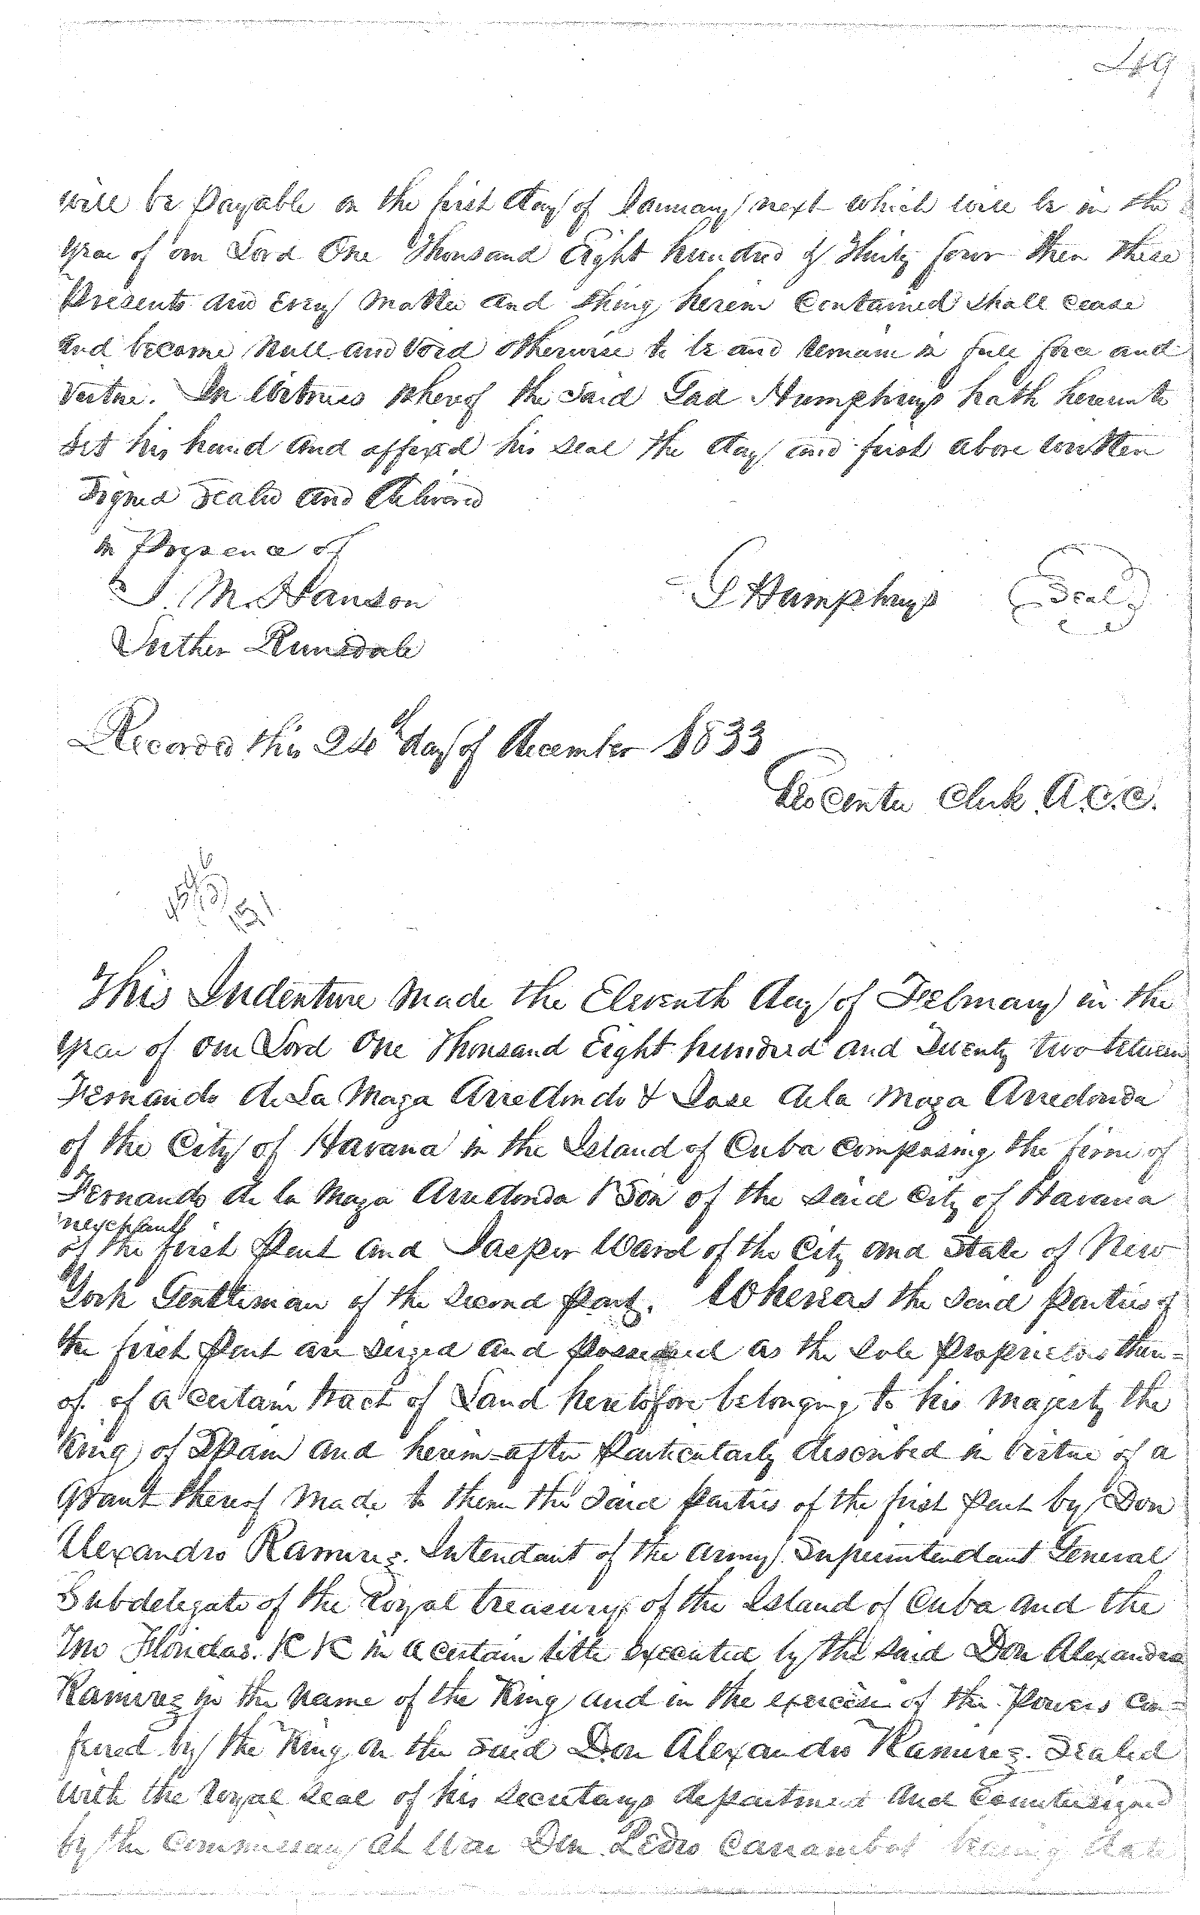 49
will be payable on the first day of January next which will be in the
year of our Lord One Thousand Eight hundred & Thirty four then these
Presents and Every Matter and thing herein Contained shall cease
and become Null and Void otherwise to be and remain in full force and
Virtue. In Witness whereof the said Gad Humphreys hath hereunto
Set his hand and affixed his seal the day and first above written
Signed Sealed and Delivered
in Presence of
J. M. Hanson
G Humphreys
Seal
Luther
Recorded this 24th day of December 1833
Geo Center Clerk A.C.C.
This Indenture Made the Eleventh day of February in the
year of our Lord One Thousand Eight hundred and Twenty two between
Fernando de La Maza Arredondo & Jose de la Maza Arredondo
of the City of Havana in the Island of Cuba composing the firm of
Fernando de la Maza Arredondo & Son of the said City of Havana
merchants
of the first Part and Jasper Ward of the City and State of New
York Gentleman of the Second Part. Whereas the said parties of
the first Part are seized and possessed as the sole Proprietors there=
of. of a certain tract of Land heretofore belonging to his Majesty the
King of Spain and herein-after Particularly described in Virtue of a
Grant thereof Made to them the said parties of the first part by Don
Alexandro Ramirez. Intendant of the Army. Superintendant General
Subdelegate of the Royal treasury of the Island of Cuba and the
Two Floridas. in a certain title executed by the said Don Alexandro
Ramirez in the Name of the King and in the exercise of the Powers con=
ferred by the King on the said Don Alexandro Ramirez. Sealed
with the royal seal of his Secretarys department and Countersigned
by the Commissary at War Don Pedro Carrambot bearing date